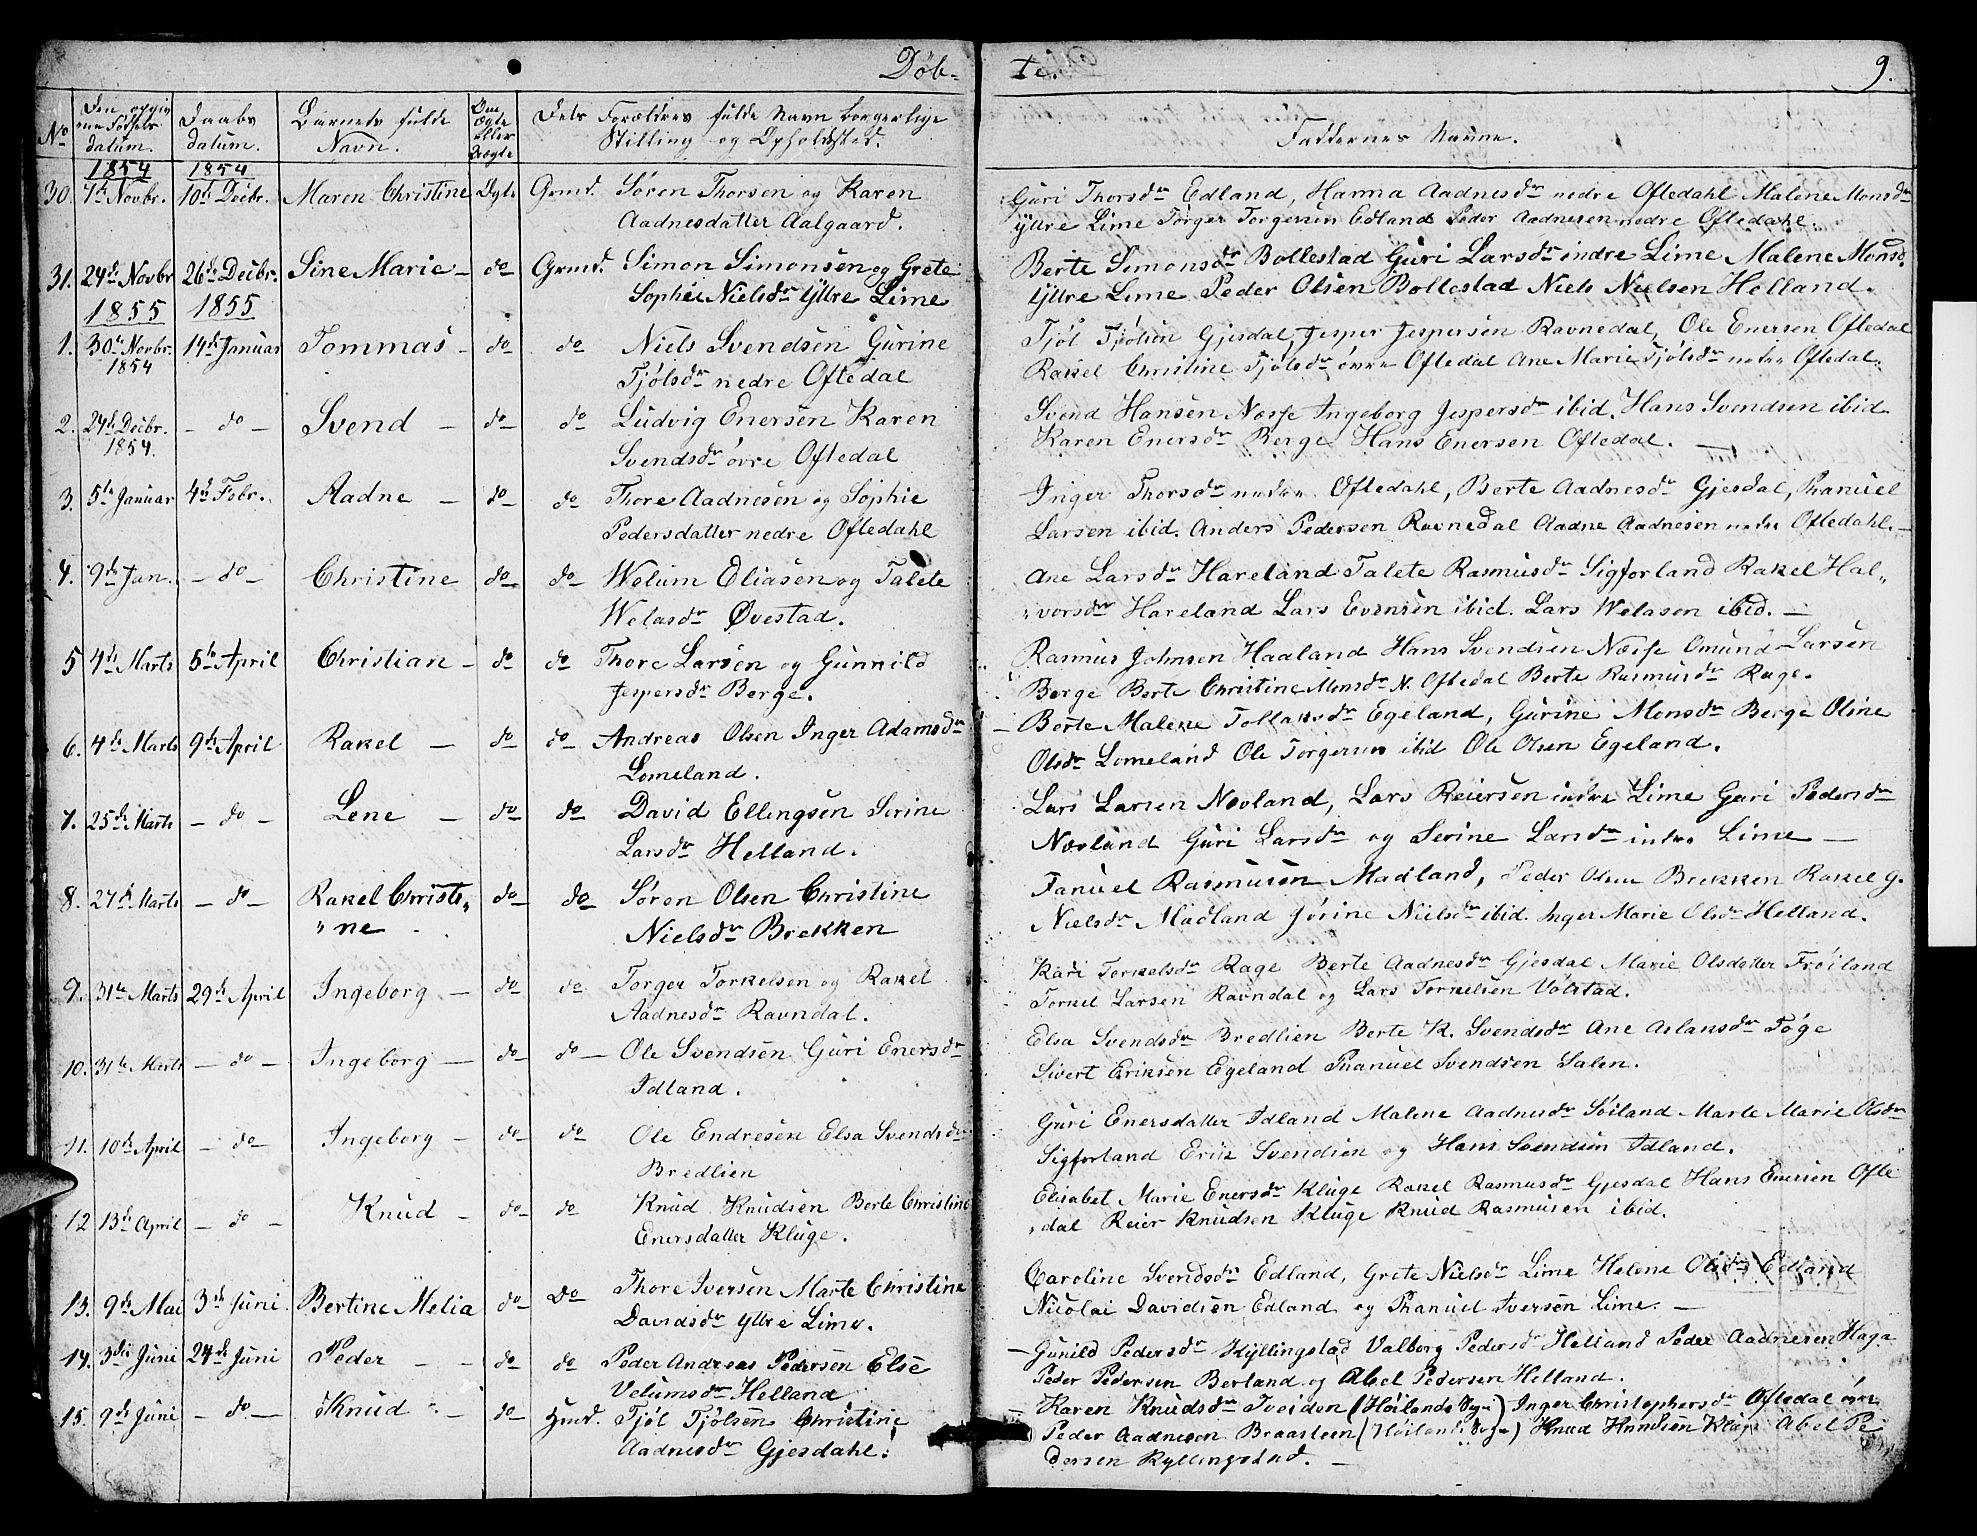 Døb-
te.
9.
No
Den opgivne Fødsels datum.
Daabs datum.
Barnets fulde Navn.
Om ægte eller uægte
Dets Forældres fulde Navn borgerlige Stilling og Opholdsted.
Faddernes Navne.
1854 1854
30. 7de Novbr. 10de Decbr. Maren Christine Ægte Grmd. Søren Thorsen og Karen
Aadnesdatter Aalgaard.
Guri Thorsdr Edland, Hanna Aadnesdr nedre Oftedahl Malene Monsdr
Yttre Lime Torger Torgersen Edland Peder Aadnesen nedre Oftedahl.
31. 24de Novbr 26de Decbr. Sine Marie - do Grmd. Simon Simonsen og Grete
Sophie Nielsdr Yttre Lime
Berte Simonsdr Bollestad Guri Larsdr indre Lime Malene Monsd.
Yttre Lime Peder Olsen Bollestad Niels Nielsen Helland.
1855 1855
1. 30te Novbr. 1854 14de Januar Tommas - do do Niels Svendsen Gurine
Tjølsdr nedre Oftedal
Tjøl Tjølsen Gjesdal, Jesper Jespersen Ravnedal, Ole Enersen Oftedal
Rakel Christine Tjølsdr øvre Oftedal Ane Marie Tjølsdr nedre Oftedal.
2. 24de Decbr. 1854. - do - Svend - do do Ludvig Enersen Karen
Svendsdr øvre Oftedal
Svend Hansen Næsse Ingeborg Jespersdr ibid. Hans Svendsen ibid
Karen Enersdr Berge Hans Enersen Oftedal. -
3. 5te Januar 4de Febr. Aadne - do do Thore Aadnesen og Sophie
Pedersdatter nedre Oftedahl
Inger Thorsdr nedre Oftedahl, Berte Aadnesdr Gjesdal, Thanuel
Larsen ibid. Anders Pedersen Ravnedal Aadne Aadnesen nedre Oftedahl. -
4. 9de Jan. - do - Christine do do Welum Eliasen og Talete
Welasdr Øvestad.
Ane Larsdr Hareland Talete Rasmusdr Sigforland Rakel Hal„
„vorsdr Hareland Lars Evensen ibid. Lars Welasen ibid. -
5 4de Marts 5te April Christian - do do Thore Larsen og Gunnild
Jespersdr Berge.
Rasmus Johnsen Haaland Hans Svendsen Næsse Omund Larsen
Berge Berte Christine Monsdr N. Oftedal Berte Rasmusdr Rage.
6. 4de Marts 9de April Rakel - do do Andreas Olsen Inger Adamsdr
Lomeland.
- Berte Malene Tollaksdr Egeland, Gurine Monsdr Berge Oline
Olsdr Lomeland Ole Torgersen ibid Ole Olsen Egeland.
7. 25de Marts - do - Lene - do do David Ellingsen Serine
Larsdr Helland.
Lars Larsen Novland, Lars Reiersen indre Lime Guri Pedersdr
Novland Guri Larsdr og Serine Larsdr indre Lime -
8. 27de Marts - do - Rakel Christi„
„ne do do Søren Olsen Christine
Nielsdr Brekken
Fanuel Rasmusen Madland, Peder Olsen Brekken Rakel G.
Nielsdr Madland Jørine Nielsdr ibid. Inger Marie Olsdr Helland.
9. 31te Marts 29de April Ingeborg - do do Torger Torkelsen og Rakel
Aadnesdr Ravndal.
Kari Torkelsdr Rage Berte Aadnesdr Gjesdal Marie Olsdatter Frøiland
Torkel Larsen Ravndal og Lars Torkelsen Vølstad.
10. 31te Marts - do - Ingeborg - do do - Ole Svendsen Guri Enersdr
Idland.
Elsa Svendsdr Bredlien Berte K. Svendsdr Ane Aslaksdr Føge
Sivert Eriksen Egeland Thanuel Svendsen Salen.
11. 10de April - do - Ingeborg - do do Ole Endresen Elsa Svendsdr
Bredlien
Guri Enersdatter Idland Malene Aadnesdr Søiland Marte Marie Olsdr
Sigforland Erik Svendsen og Hans Svendsen Idland.
12 13de April - do - Knud - do do Knud Knudsen Berte Christine
Enersdatter Kluge.
Elisabet Marie Enersdr Kluge Rakel Rasmusdr Gjesdal Hans Enersen Ofte
„dal Reier Knudsen Kluge Knud Rasmusen ibid.
13. 9de Mai 3de Juni Bertine Melia do Do Thore Iversen Marte Christine
Davidsdr Yttre Lime.
Caroline Svendsdr Edland, Grete Nielsdr Lime Helene Olsdr Edland
Nicolai Davidsen Edland og Thanuel Iversen Lime. -
14. 3die Juni 24de Juni Peder - - do do Peder Andreas Pedersen Else
Velumsdr Helland
- Gunild Pedersdr Kyllingstad Valborg Pedersdr Helland Peder Aadnesen Haga
Peder Pedersen Berland og Abel Pedersen Helland.
15. 9de Juni - do - Knud - do Hmd. Tjøl Tjølsen Christine
Aadnesdr Gjesdahl.
- Karen Knudsdr Tveiden (Høilands Sogn) Inger Christophersdr Oftedal øvre
Peder Aadnesen Braasteen (Høilands Sogn) Knud Knudsen Kluge Abel Pe
dersen Kyllingstad. -